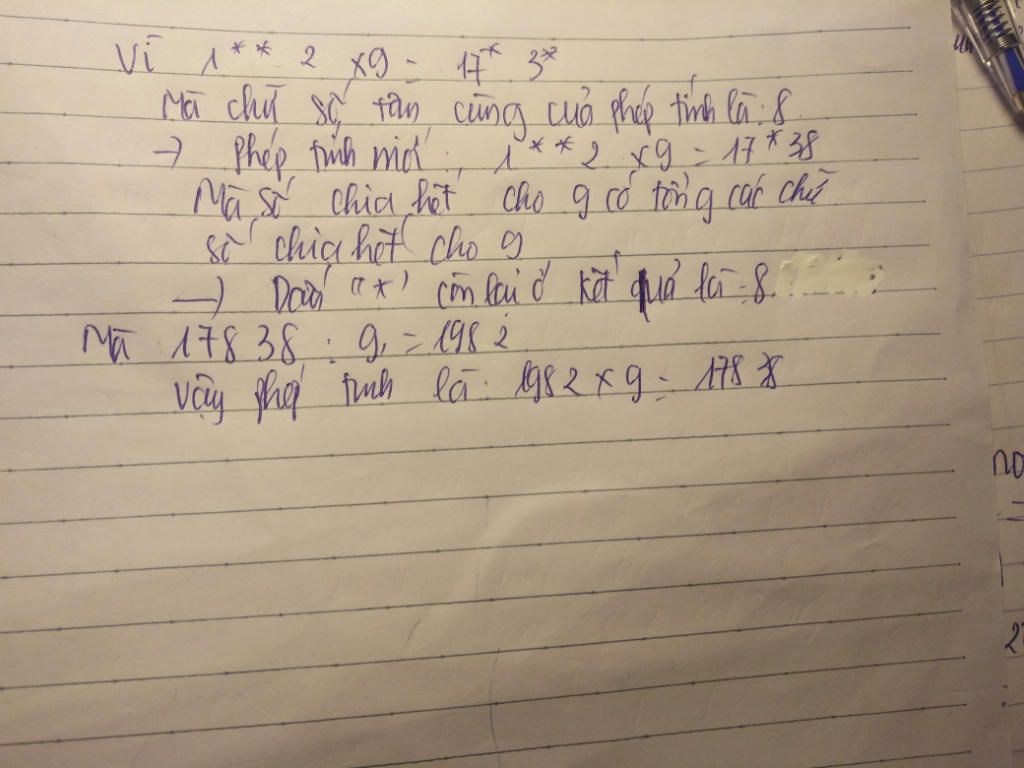 Vì 1** 2 x9 = 17* 3*
Mà chữ số tân cùng của phép tính là: 8
→ phép tính mới: 1**2 x9 = 17*38
Mà số chia hết cho 9 có tổng các chữ
số chia hết cho 9
→ Dấu "*" còn lại ở kết quả là: 8
Mà 17838 : 9 = 1982
Vậy phép tính là: 1982 x 9 =